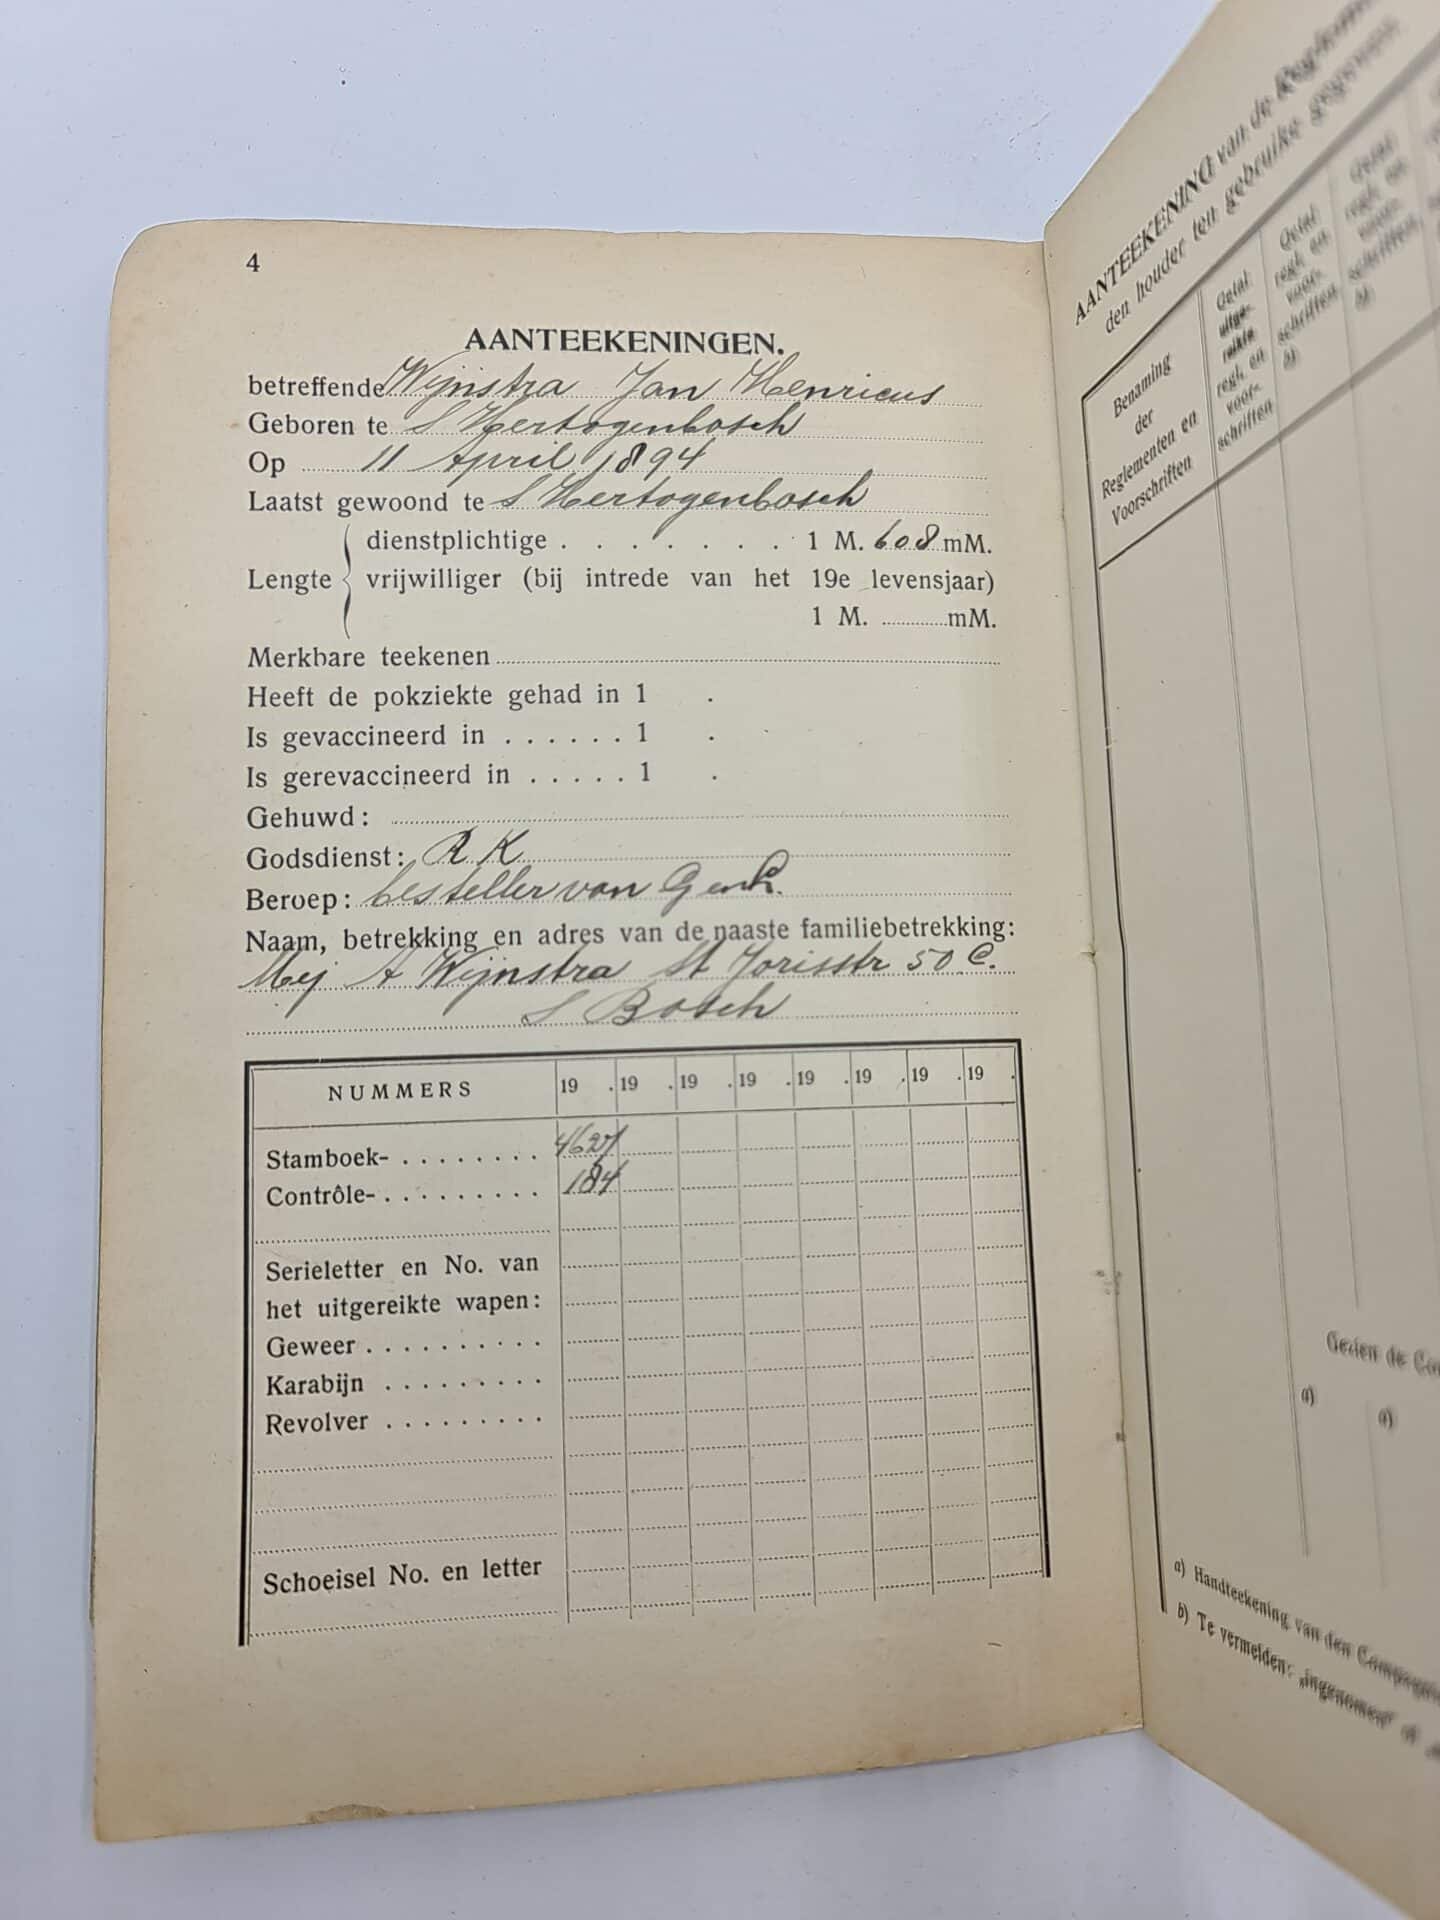 4
AANTEEKENINGEN.
betreffende Wijnstra Jan Henricus
Geboren te S Hertogenbosch
Op 11 April 1894
Laatst gewoond te S Hertogenbosch
Lengte
dienstplichtige . . . . . . . 1 M. 608 mM.
vrijwilliger (bij intrede van het 19e levensjaar)
1 M. mM.
Merkbare teekenen
Heeft de pokziekte gehad in 1 .
Is gevaccineerd in . . . . . . 1 .
Is gerevaccineerd in . . . . . 1 .
Gehuwd:
Godsdienst: R K
Beroep: besteller van
Naam, betrekking en adres van de naaste familiebetrekking:
Mej A Wijnstra St Jorisstr 50 C.
S Bosch
NUMMERS 19 . 19 . 19 . 19 . 19 . 19 . 19 . 19 .
Stamboek- . . . . . . . . 4627
Contrôle- . . . . . . . . . 184
Serieletter en No. van
het uitgereikte wapen:
Geweer . . . . . . . . . .
Karabijn . . . . . . . . .
Revolver . . . . . . . . .
Schoeisel No. en letter
AANTEEKENING van de
den houder ten gebruike gegeven
Benaming
der
Reglementen en
Voorschriften
Getal
uitge-
reikte
regl. en
voor-
schriften
Getal
regl. en
voor-
schriften
a)
Getal
regl. en
voor-
schriften
b)
Gezien de
a)
a)
a) Handteekening van den
b) Te vermelden: „ingenomen"